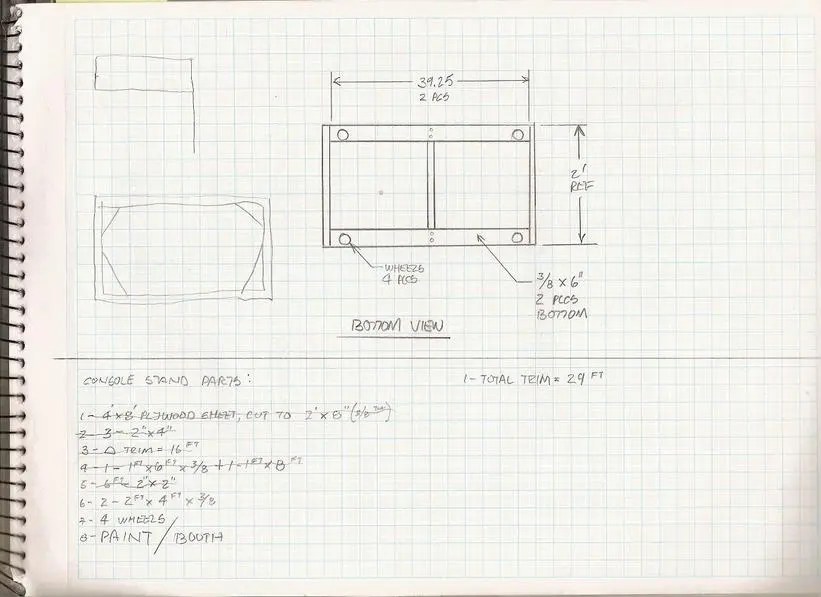 39.25
2 PCS
2'
REF
WHEELS
4 PCS
3/8 x 6"
2 PCS
BOTTOM
BOTTOM VIEW
CONSOLE STAND PARTS:
1- TOTAL TRIM = 29 FT
1- 4'x8' PLYWOOD SHEET, CUT TO 2' x 8"
2- 3- 2"x4"
3- △ TRIM = 16 FT
4- 1- 1FT x 6FT x 3/8 + 1- 1FT x 8 FT
5- 6FT- 2"x2"
6- 2- 2FT x 4FT x 3/8
7- 4 WHEELS
8- PAINT / BOOTH